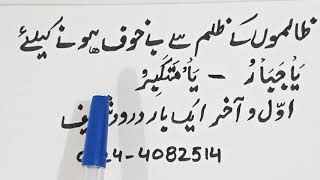 ظالموں کے ظلم سے بے خوف ہونے کیلئے
یَا جَبَّارُ - یَا مُتَکَبِّرُ
اوّل و آخر ایک بار درود شریف
24-4082514